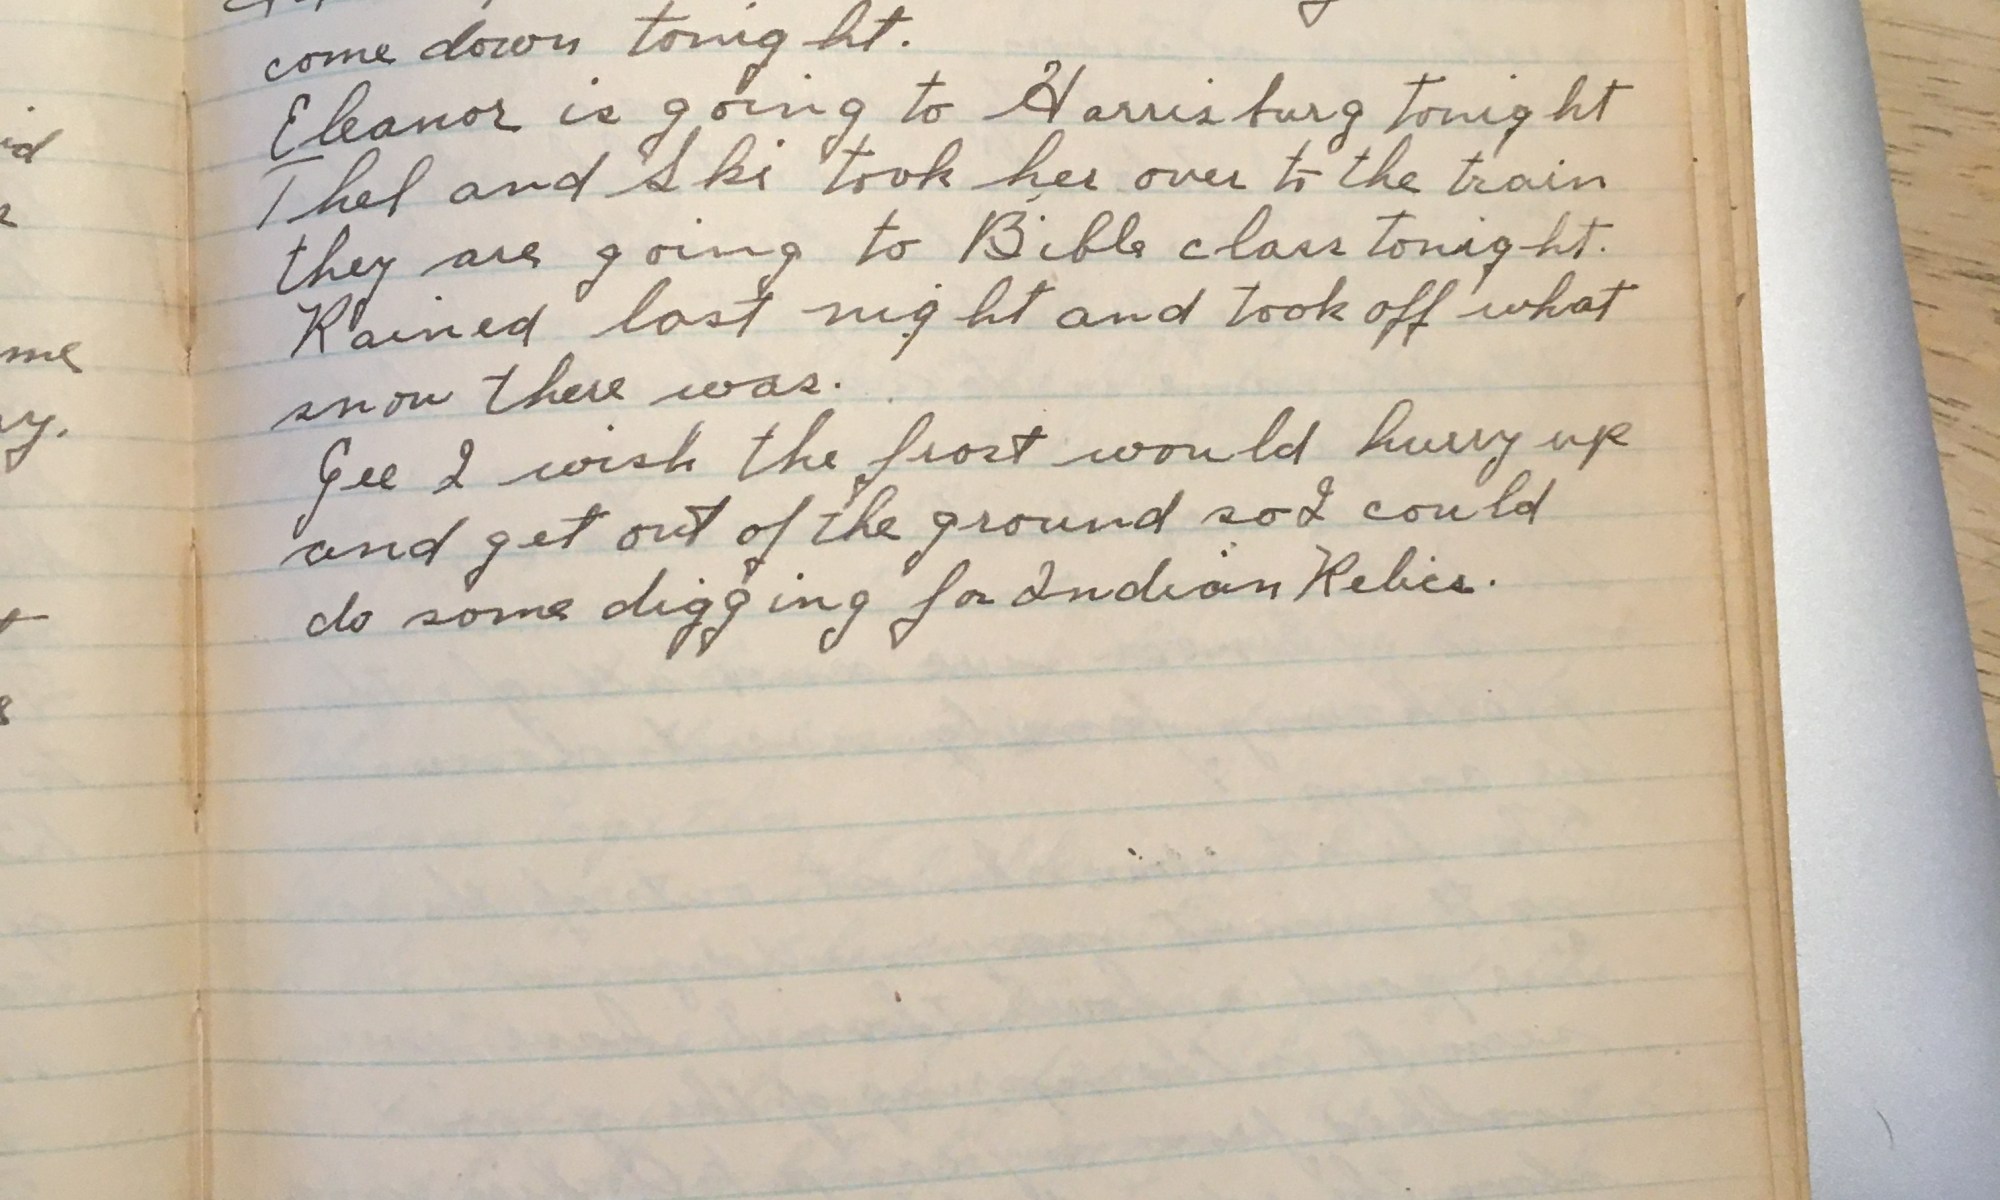 come down tonight.
Eleanor is going to Harrisburg tonight
Thel and Ski took her over to the train
they are going to Bible class tonight.
Rained last night and took off what
snow there was.
Gee I wish the frost would hurry up
and get out of the ground so I could
do some digging for Indian Relics.
me